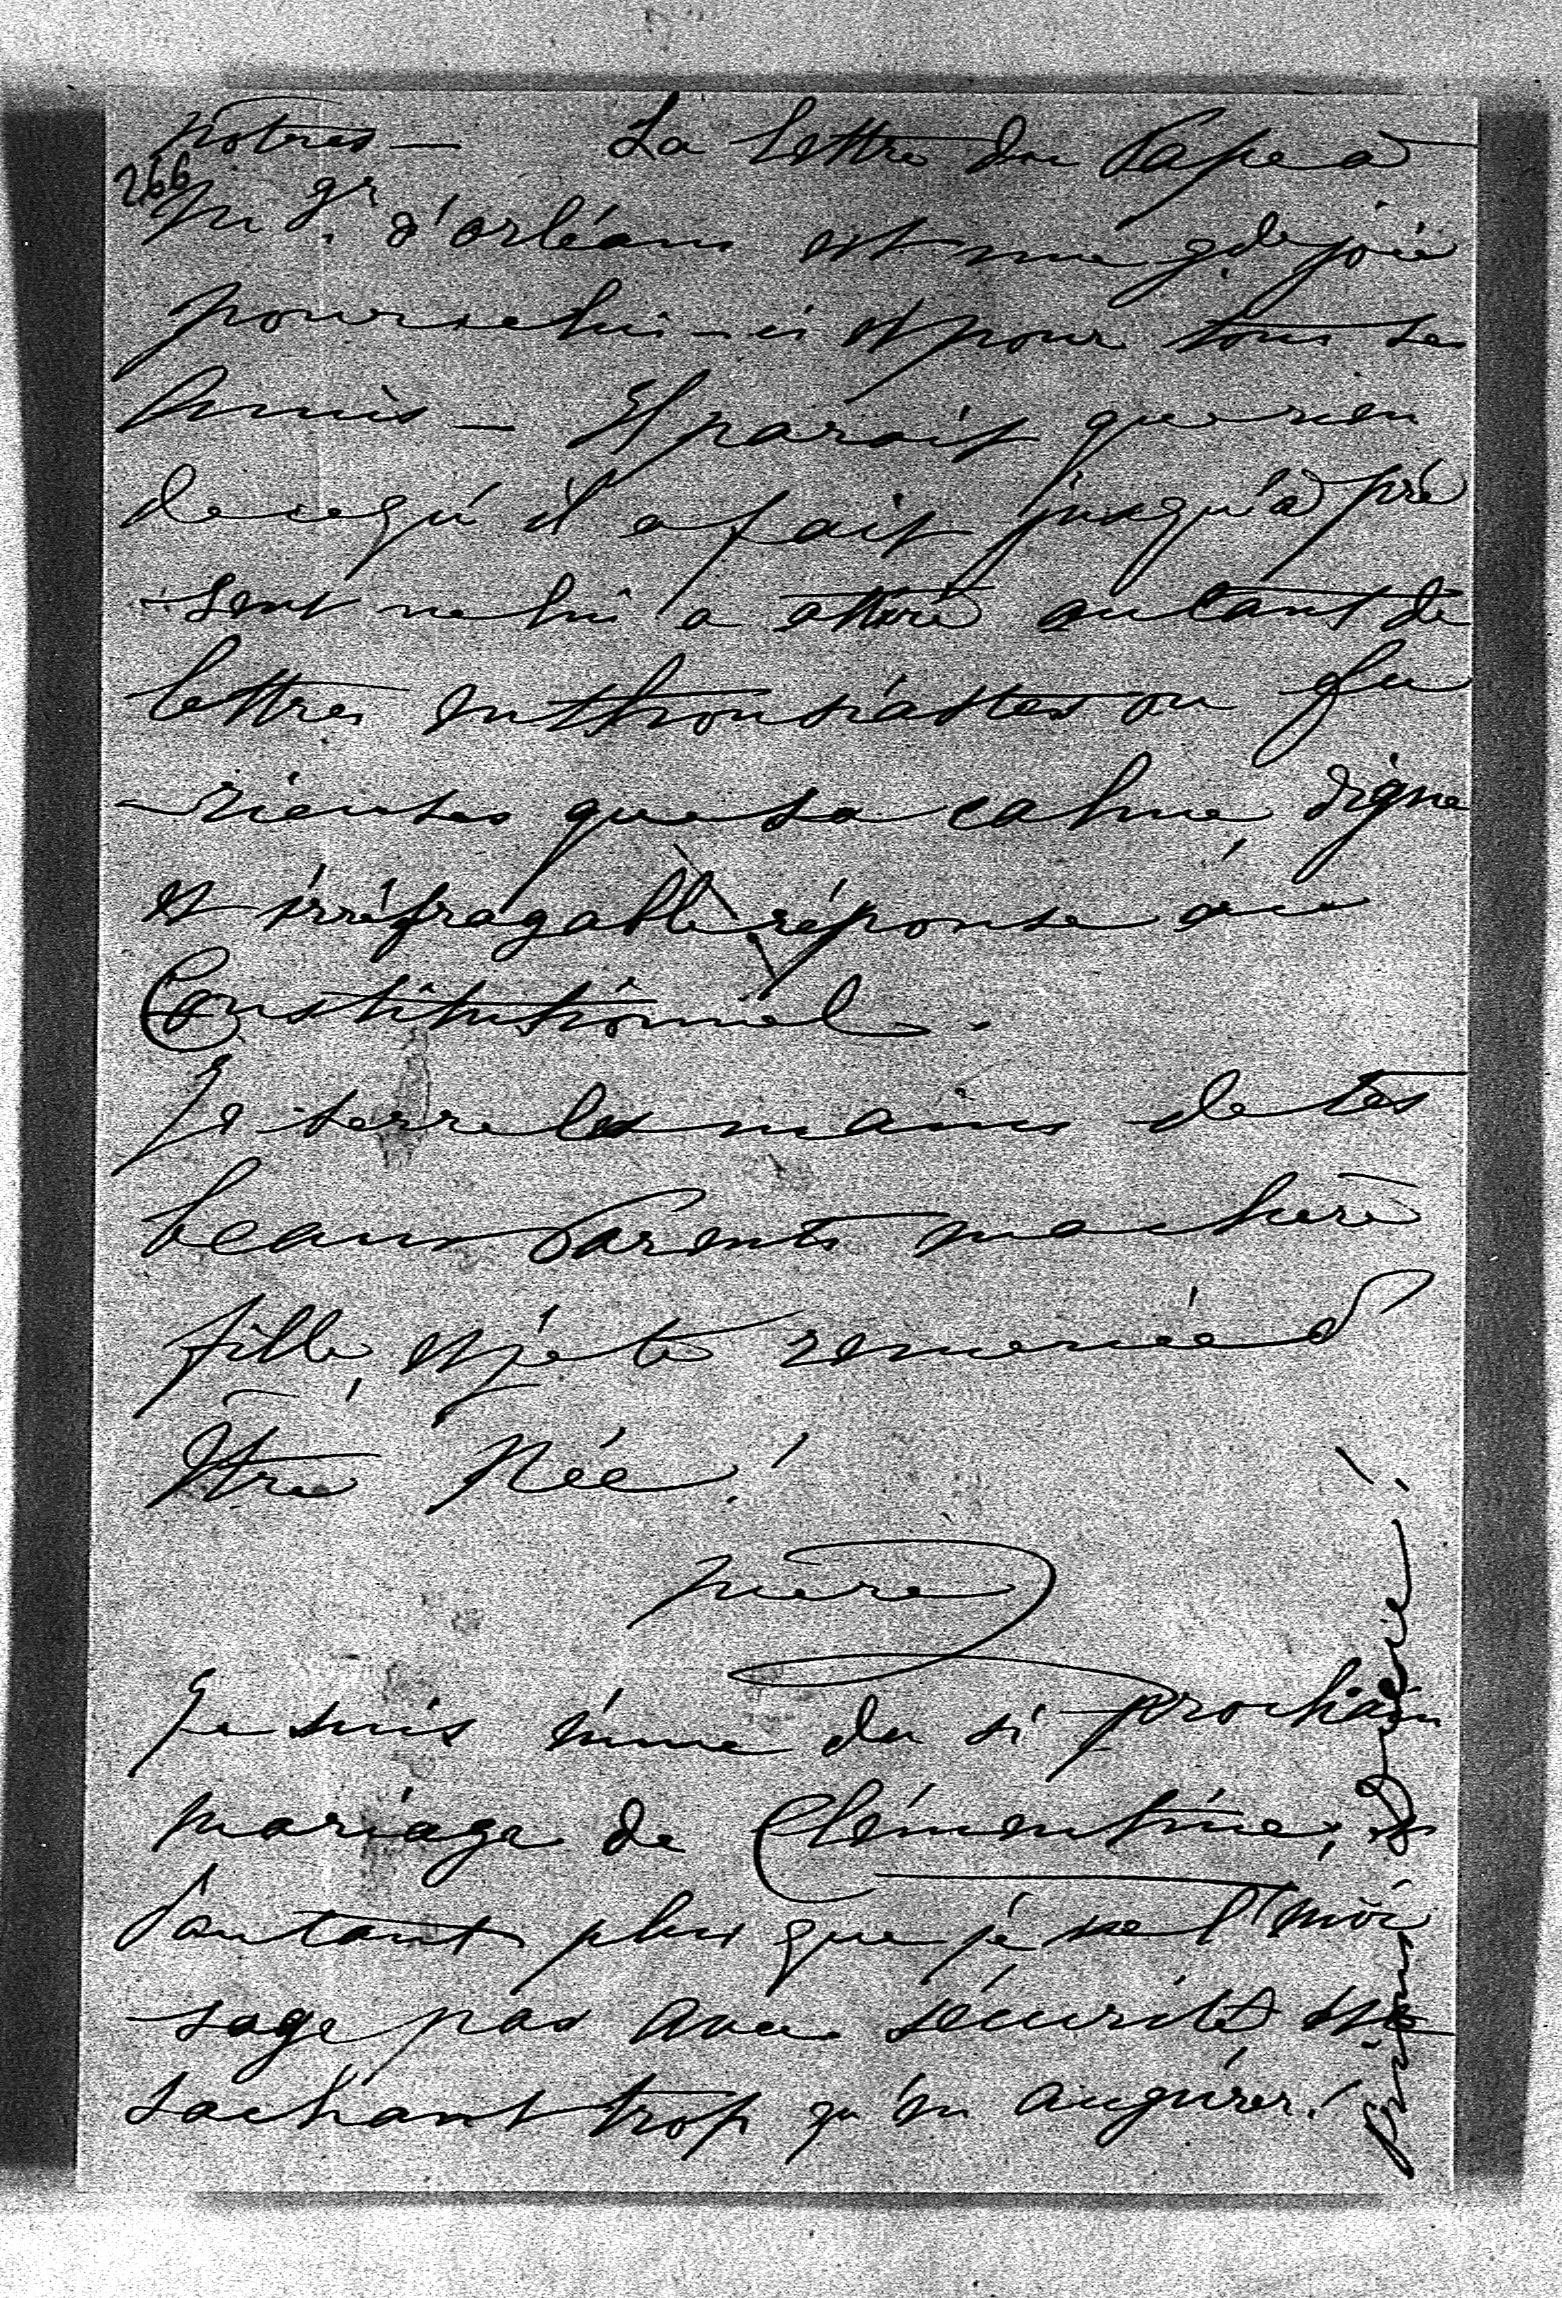 nôtres — La lettre du Pape à
266
Mgr. d'orléans est une gde joie
pour celui-ci et pour tous ses
Amis — Il parait que rien
de ce qu'il a fait jusqu'à pré
-sent ne lui a attiré autant de
lettres enthousiastes ou fu
-rieuses que sa calme, digne
et irréfragable réponse au
Constitutionnel.
Je serre les mains de tes
beaux Parents ma chère
fille, et je te remercie d'
être Née!
mère
Je suis émue du si prochain
mariage de Clémentine,
d'autant plus que je ne l'envi
sage pas avec sécurité ne
sachant trop qu'en augurer!